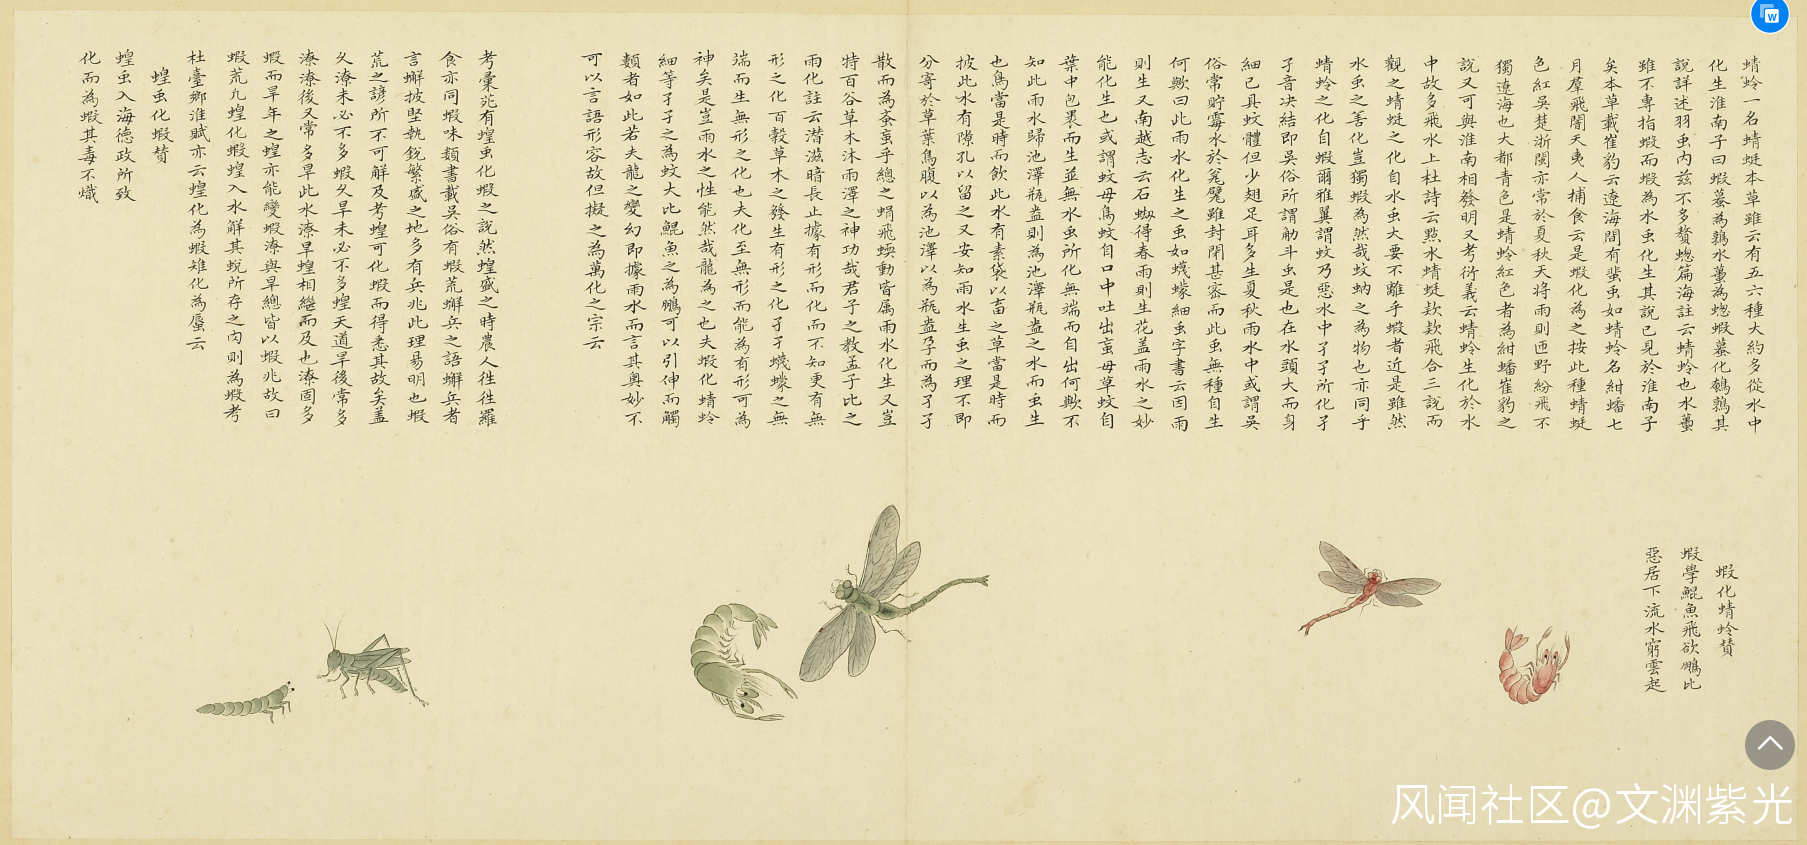 蜻蛉一名蜻蜓本草雖云有五六種大約多從水中
化生淮南子曰蝦蟇為鶉水蠆為蟌蝦蟇化鵪鶉其
說詳述羽虫内茲不多贅蟌篇海註云蜻蛉也水蠆
雖不專指蝦而蝦為水虫化生其說已見於淮南子
矣本草載崔豹云遼海間有蜚虫如蜻蛉名紺蟠七
月羣飛闇天夷人捕食云是蝦化為之按此種蜻蜓
色紅吳楚浙閩亦常於夏秋天將雨則匝野紛飛不
獨遼海也大都青色是蜻蛉紅色者為紺蟠崔豹之
說又可與淮南相發明又考衍義云蜻蛉生化於水
中故多飛水上杜詩云點水蜻蜓欵欵飛合三說而
觀之蜻蜓之化自水虫大要不離乎蝦者近是雖然
水虫之善化豈獨蝦為然哉蚊蚋之為物也亦同乎
蜻蛉之化自蝦爾雅翼謂蚊乃惡水中孑孓所化孑
孓音决結即吳俗所謂觔斗虫是也在水頭大而身
細已具蚊體但少翅足耳多生夏秋雨水中或謂吳
俗常貯霉水於瓮甓雖封閉甚密而此虫無種自生
何歟曰此雨水化生之虫如蠛蠓細虫字書云因雨
則生又南越志云石蜐得春雨則生花盖雨水之妙
能化生也或謂蚊母鳥蚊自口中吐出䖟母草蚊自
葉中包裹而生並無水虫所化無端而自出何歟不
知此雨水歸池澤瓶盎則為池澤瓶盎之水而虫生
也鳥當是時而飲此水有素袋以畜之草當是時而
披此水有隙孔以留之又安知雨水生虫之理不即
分寄於草葉鳥腹以為池澤以為瓶盎孕而為孑孓
散而為蚉䖟乎總之蜎飛蝡動皆属雨水化生又豈
特百谷草木沐雨澤之神功哉君子之教孟子比之
雨化註云潜滋暗長止據有形而化而不知更有無
形之化百穀草木之發生有形之化孑孓蠛蠓之無
端而生無形之化也夫化至無形而能為有形可為
神矣是豈雨水之性能然哉龍為之也夫蝦化蜻蛉
細等孑孓之為蚊大比鯤魚之為鵬可以引伸而觸
類者如此若夫龍之變幻即據雨水而言其奧妙不
可以言語形容故但擬之為萬化之宗云
蝦化蜻蛉賛
蝦學鯤魚飛欲鵬比
惡居下流水窮雲起
考彚苑有蝗虫化蝦之說然蝗盛之時農人徃徃羅
食亦同蝦味類書載吳俗有蝦荒蠏兵之語蠏兵者
言蠏披堅執銳繁盛之地多有兵兆此理易明也蝦
荒之諺所不可解及考蝗可化蝦而得悉其故矣盖
久潦未必不多蝦久旱未必不多蝗天道旱後常多
潦潦後又常多旱此水潦旱蝗相繼而及也潦固多
蝦而旱年之蝗亦能變蝦潦與旱總皆以蝦兆故曰
蝦荒凢蝗化蝦蝗入水解其蛻所存之肉則為蝦考
杜臺鄉淮賦亦云蝗化為蝦雉化為蜃云
蝗虫化蝦賛
蝗虫入海德政所致
化而為蝦其毒不熾
风闻社区@文渊紫光